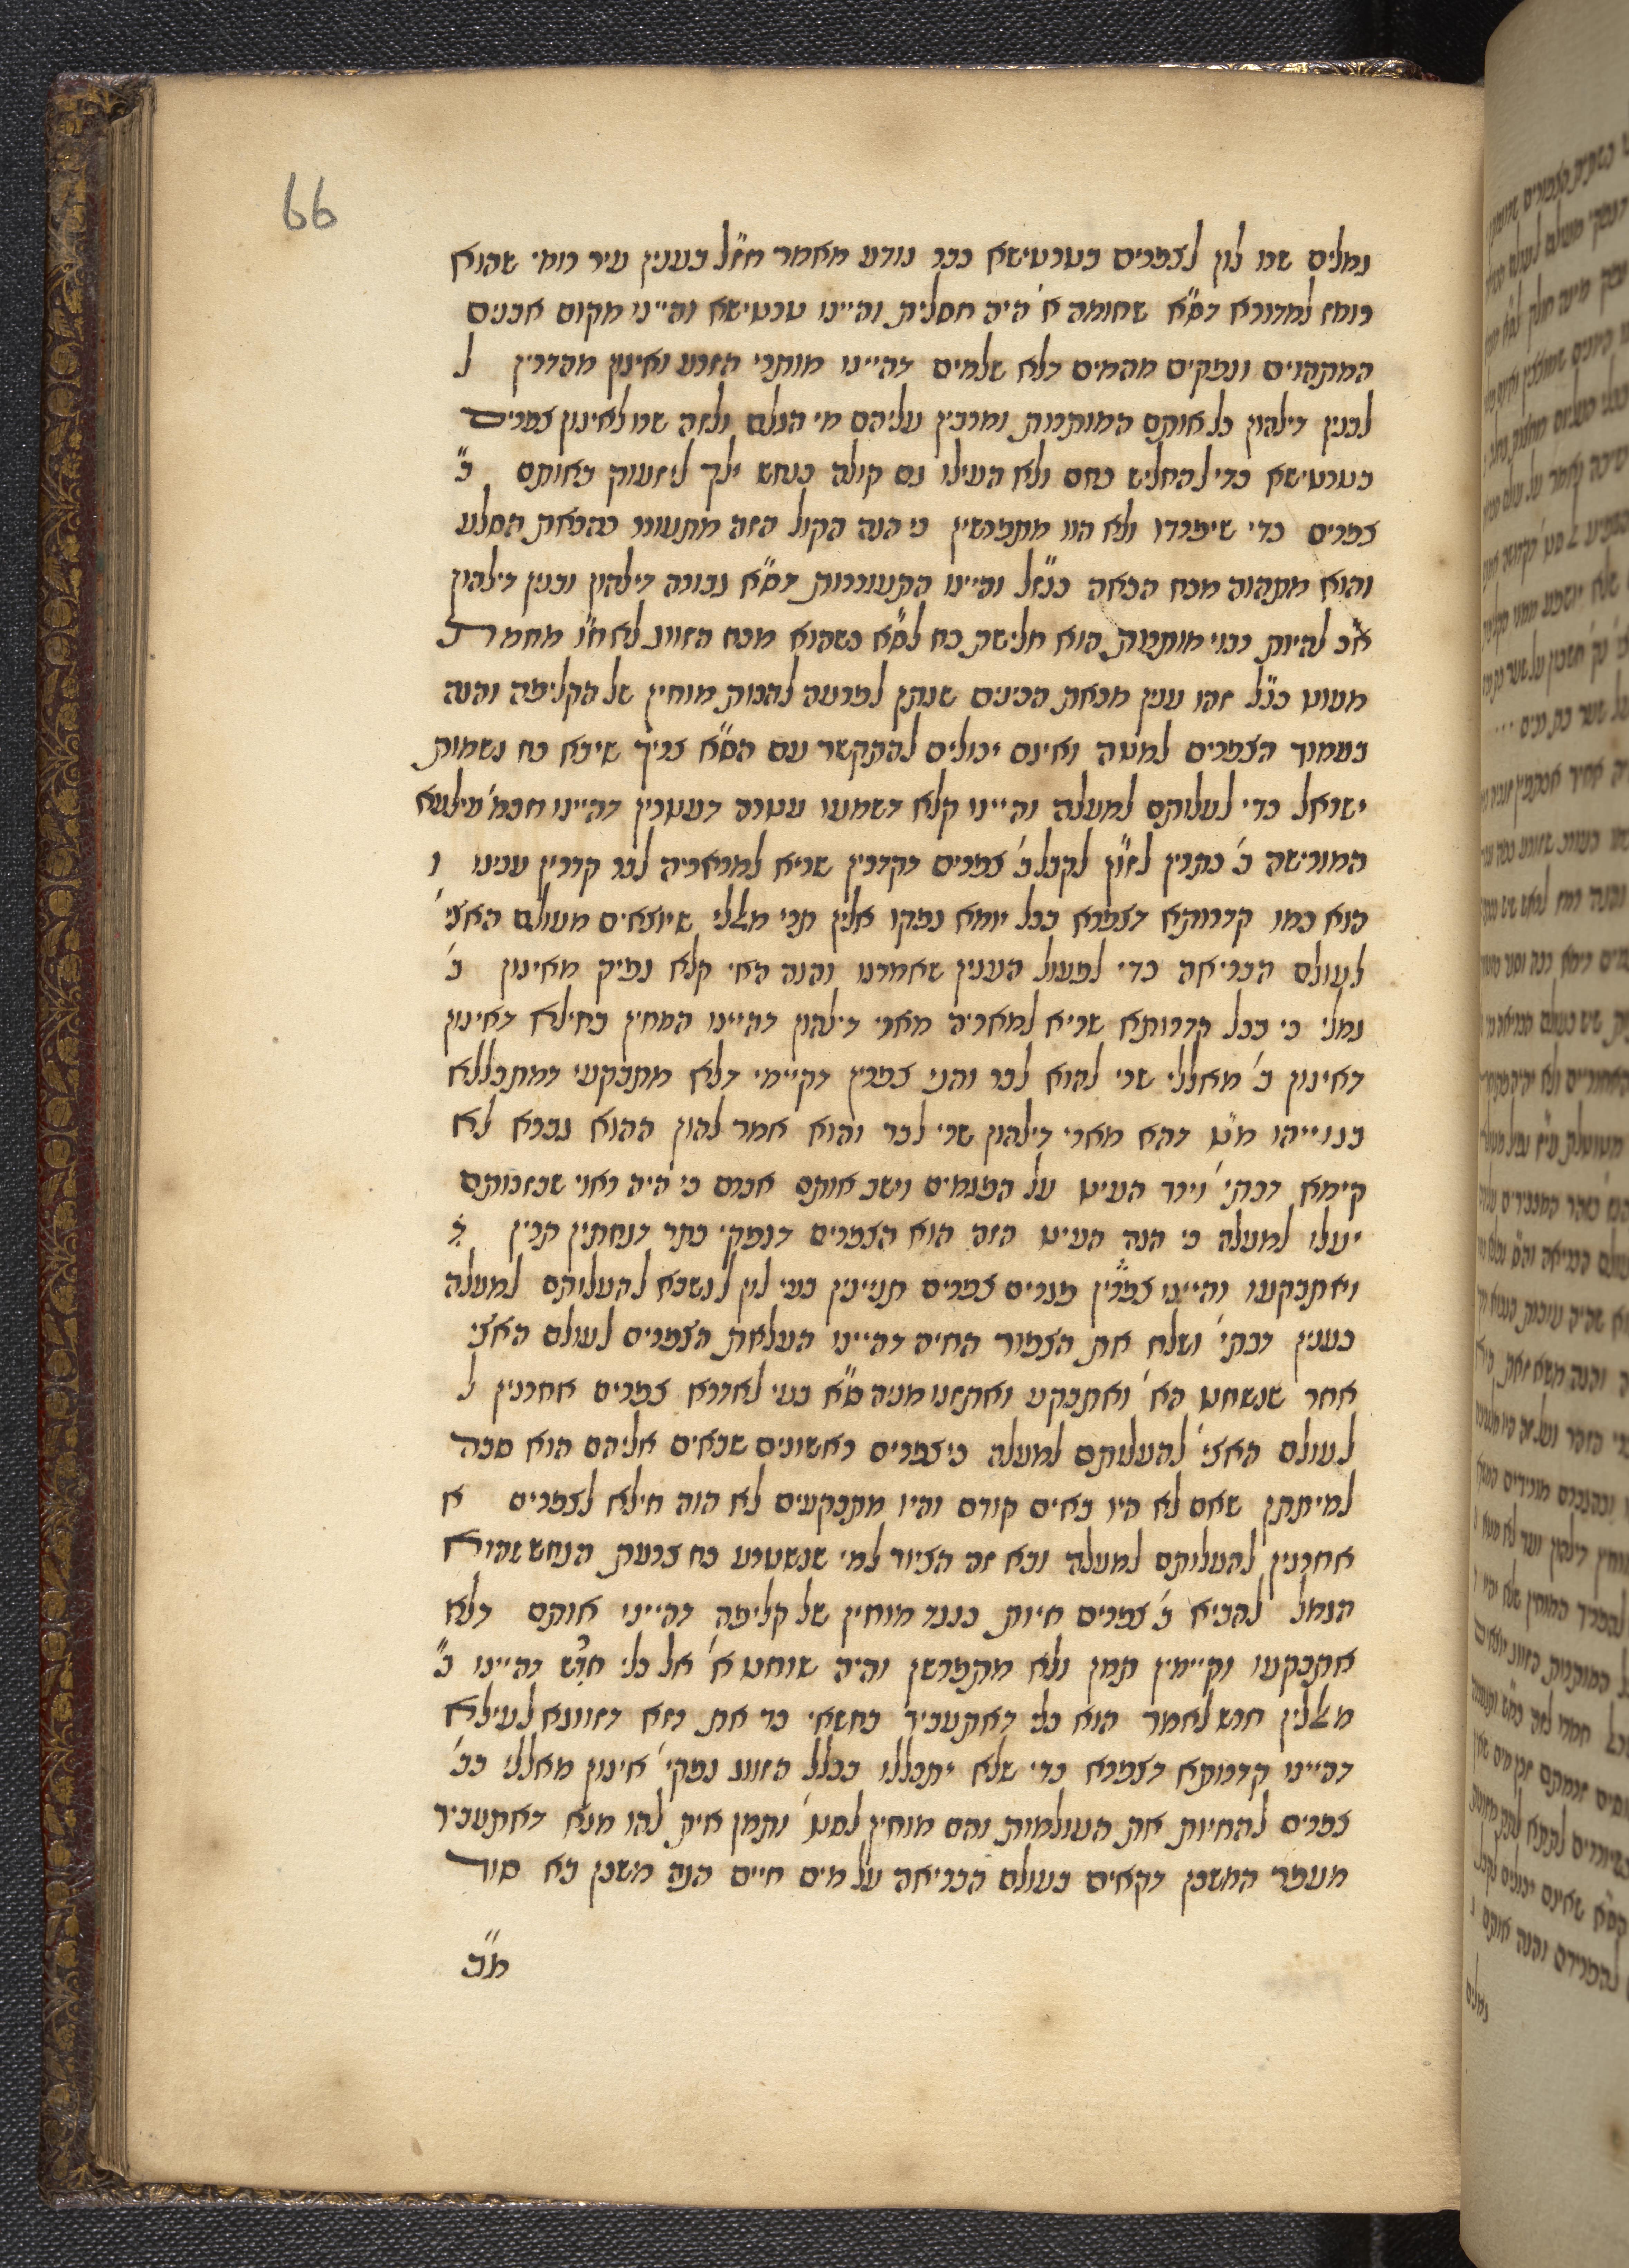 66
גמלים שרו לון לצפרים בטרטישא כבר נודע מאמר חז"ל בענין עיר רומי שהוא
רומז למדורא דס"א שחומה א' היה חסלית והיינו טרטישא והיינו מקום אבנים
המתהוים ונפקים מהמים דלא שלמים דהיינו מותרי הזרע ואינון מהדרין ל
לבנין דילהון כל אותם המותרות ומרבין עליהם מי הגולם ולזה שרו לאינון צפרים
בטרטישא כדי להחליש כחם ולא העילו גם קולה כנחש ילך ליזעוק באותם ב"
צפרים כדי שיפרדו ולא הוו מתפרשין כי הנה הקול הזה מתעורר בהכאת הסלע
והוא מתהוה מכח הכאה כנ"ל והיינו התעוררות דס"א גבורה דילהון ובנין דילהון
א"כ להיות רבוי מותרות הוא חלישת כח לס"א כשהוא מכח הזווג לא ח"ו מחמת
מעוט כנ"ל וזהו ענין מכאת הכינים שנתן לפרעה להכות מוחין של הקליפה והנה
בעמוד הצפרים למטה ואינם יכולים להתקשר עם הס"א צריך שיבא כח נשמות
ישראל כדי לעלותם למעלה והיינו קלא דשמעו עטרה דעטרין דהיינו חכמ' עילאה
המורישה ב' כתרין לזו"ן לקבל ב' צפרים דקדרין שריא למאריה לבר קדרין ענינו ו
הוא כמו קדרותא דצפרא בכל יומא נפקו אלין תרי מאללי שיוצאים מעולם האצי'
לעולם הבריאה כדי לפעול הענין שאמרנו והנה האי קלא נפיק מאינון ב'
גמלי כי בכל קדרותא שריא למאריה מארי דילהון דהיינו המחין בחילא דאינון
דאינון ב' מאללי שרי להוא לבר והני צפרין דקיימי דלא מתבקעי דמתכללא
בגווייהו מ"ט דהא מארי דילהון שרי לבר והוא אמר להון ההוא גברא לא
קימא דכתי' וירד העיט על הפגרים וישב אותם אברם כי היה ראוי שבזכותם
יעלו למעלה כי הנה העיט הזה הוא הצפרים דנפקי בתר דנחתין תרין
ואתבקעו והיינו צפרין פגרים צפרים תניינין בעי לון לנשבא להעלותם למעלה
כענין דכתי' ושלח את הצפור החיה דהיינו העלאת הצפרים לעולם האצי
אחר שנשחט הא' ואתבקע ואתזנו מניה ס"א בעי לאדרא צפרים אחרנין ל
לעולם האצי' להעלותם למעלה כי צפרים ראשונים שבאים אליהם הוא סבה
למיתתן שאם לא היו באים קודם והיו מתבקעים לא הוה חילא לצפרים א
אחרנין להעלותם למעלה ובא זה הציור למי שנשטרע כח צרעת הנחש שהוא
הגמל להביא ב' צפרים חיות כנגד מוחין של קליפה דהיינו אותם דלא
אתבקעו וקיימין תמן ולא מתפרשן והיה שוחט א' אל כלי חרש דהיינו ב"
מאללין חרש לאמר הוא כלי דאתעביד בחשאי כד את רזא דזווגא לעילא
דהיינו קדרותא דצפרא כדי שלא יתכללו בכלל הזווג נפקי' אינון מאללי בב'
צפרים להחיות את העולמות והם מוחין לסט' ותמן אית להו מנא דאתעביד
מעפר המשכן דקאים בעולם הבריאה על מים חיים הנה משכן בא סוד
מ"ב